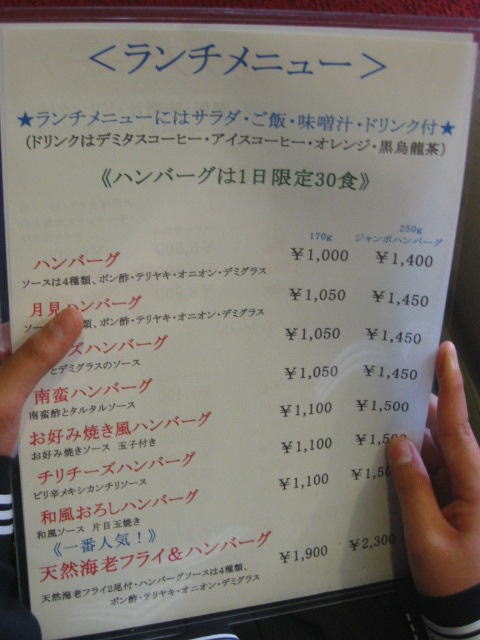 ＜ランチメニュー＞
★ランチメニューにはサラダ・ご飯・味噌汁・ドリンク付★
（ドリンクはデミタスコーヒー・アイスコーヒー・オレンジ・黒烏龍茶）
《ハンバーグは1日限定30食》
170g 250g
ジャンボハンバーグ
ハンバーグ ￥1,000 ￥1,400
ソースは4種類、ポン酢・テリヤキ・オニオン・デミグラス
月見ハンバーグ ￥1,050 ￥1,450
ソー 類、ポン酢・テリヤキ・オニオン・デミグラス
ズハンバーグ ￥1,050 ￥1,450
とデミグラスのソース
南蛮ハンバーグ ￥1,050 ￥1,450
南蛮酢とタルタルソース
お好み焼き風ハンバーグ ￥1,100 ￥1,500
お好み焼きソース 玉子付き
チリチーズハンバーグ ￥1,100 ￥1,50
ピリ辛メキシカンチリソース
和風おろしハンバーグ ￥1,100 ￥1,50
和風ソース 片目玉焼き
《一番人気！》
天然海老フライ＆ハンバーグ ￥1,900 ￥2,300
天然海老フライ2尾付・ハンバーグソースは4種類、
ポン酢・テリヤキ・オニオン・デミグラス